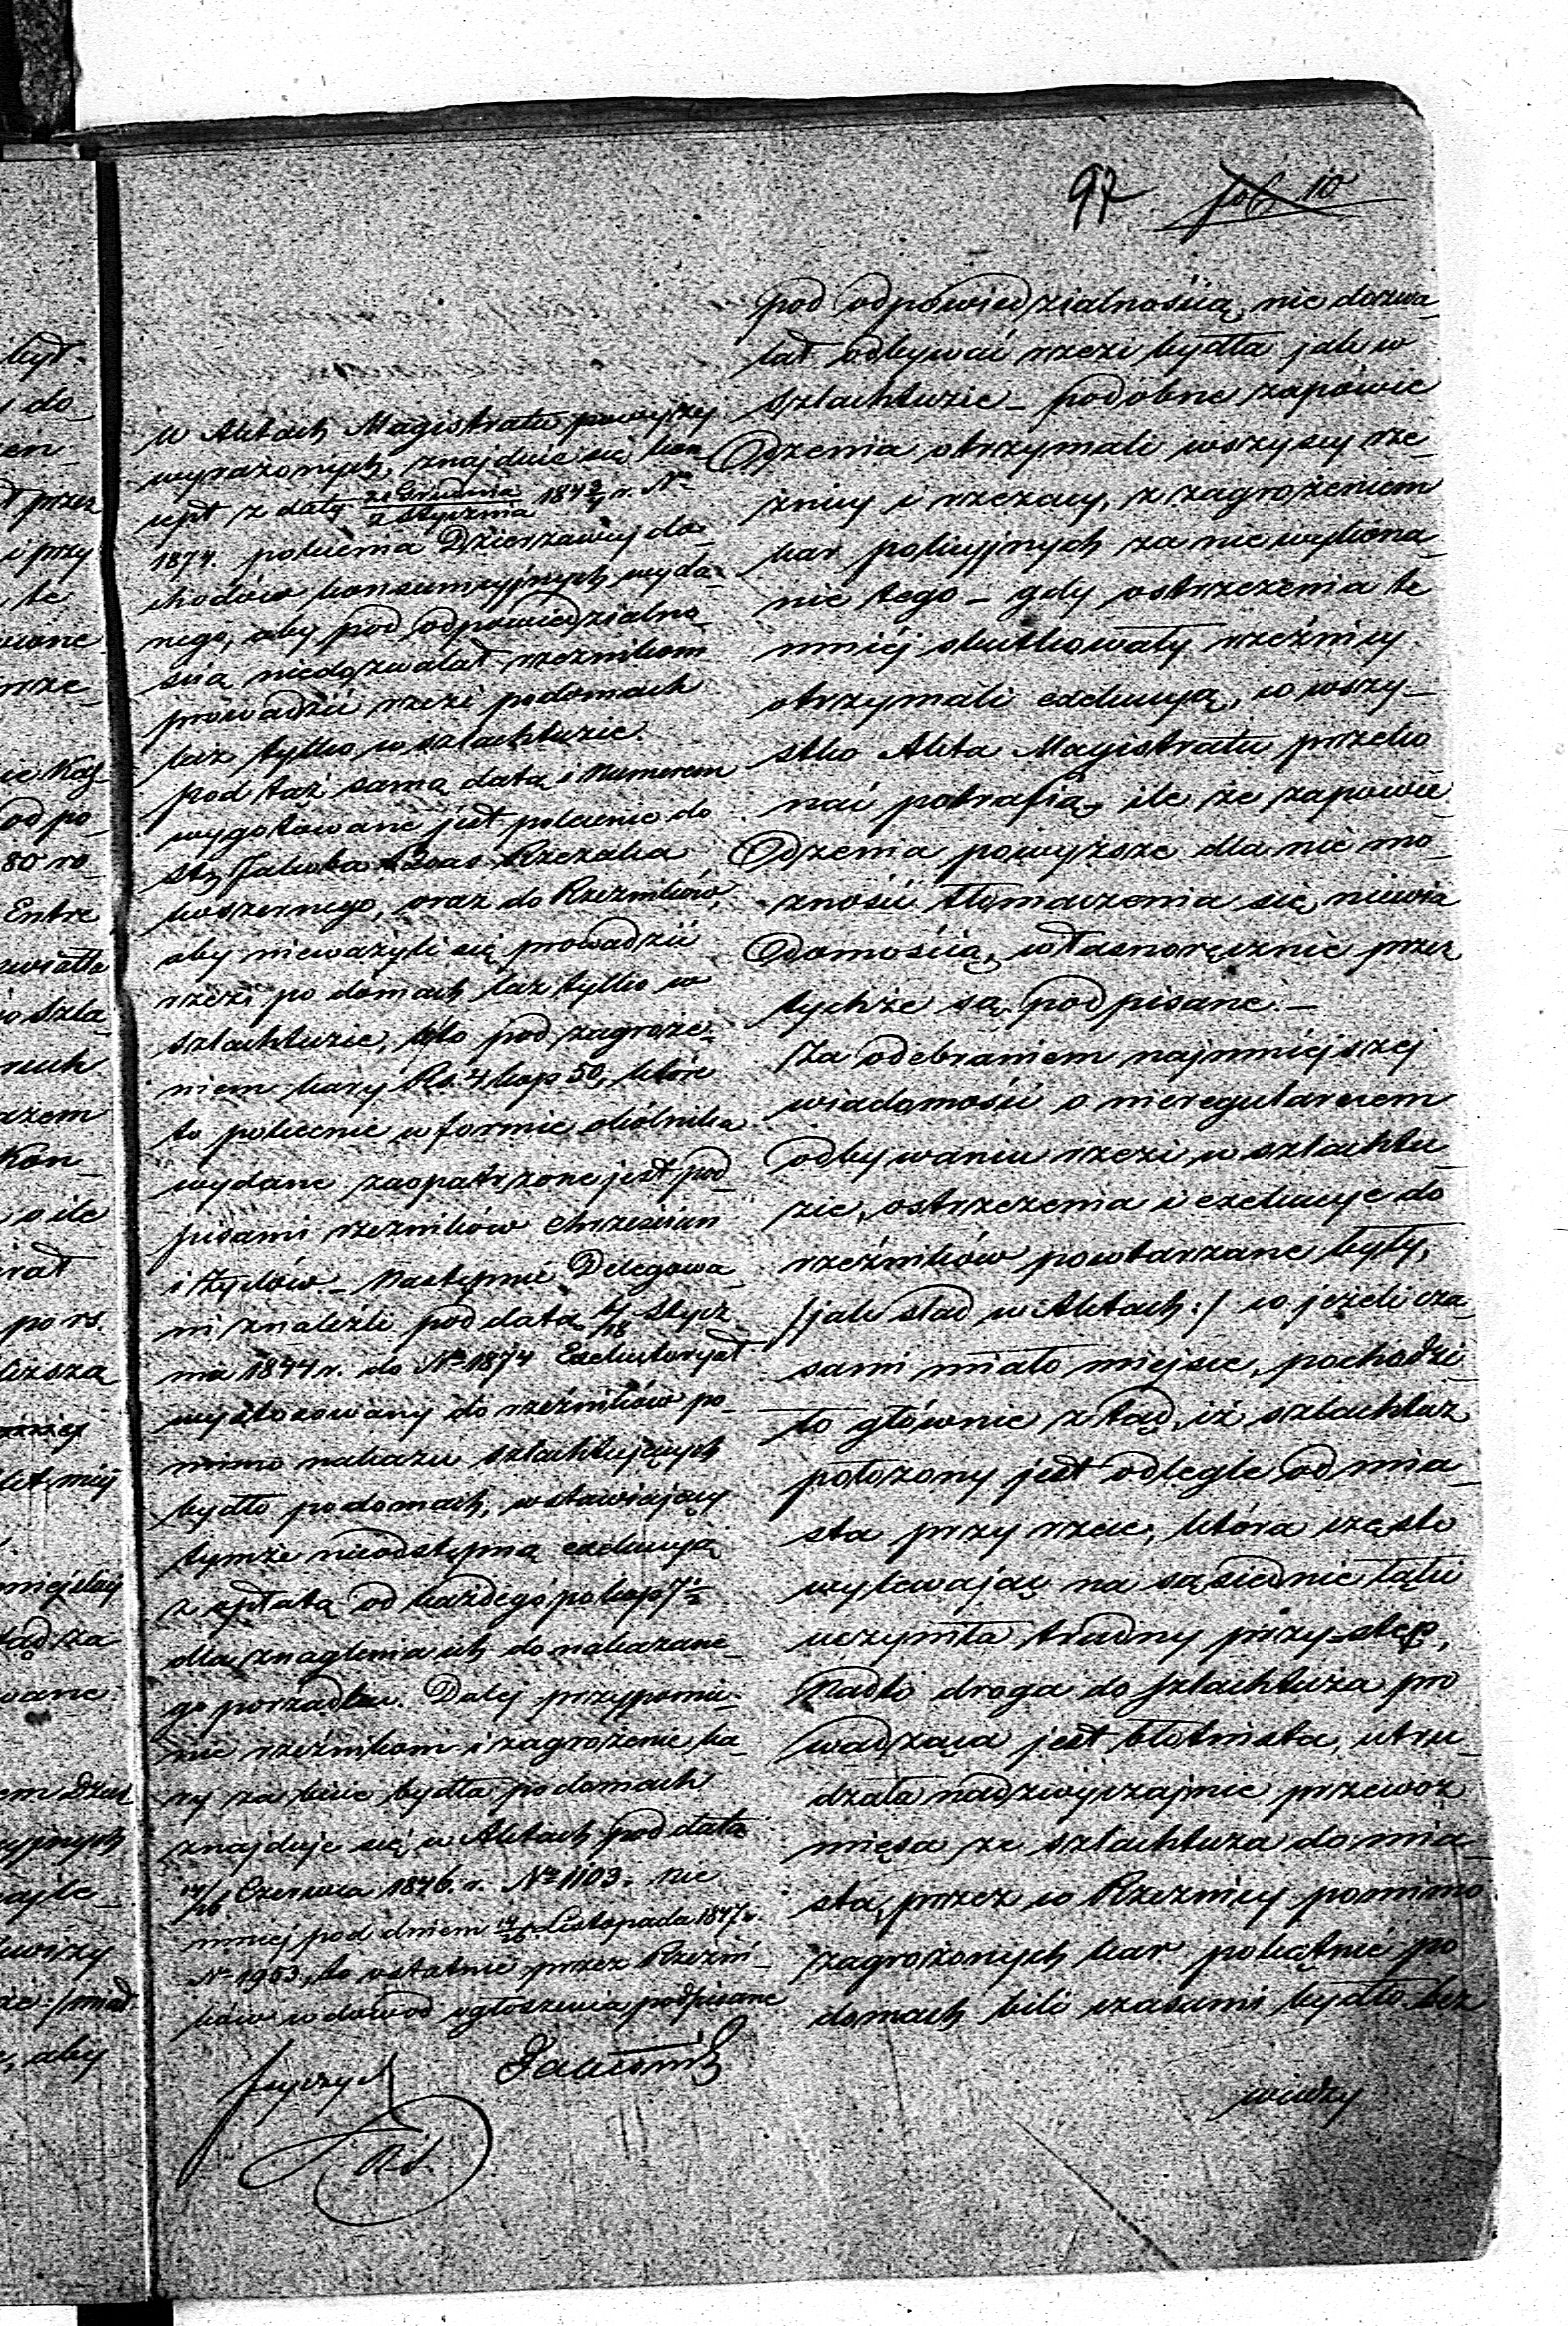 97
pol 10
W Aktach Magistratu powyżej
wyrażonych, znajduie się kon
cept z daty 21 Grudnia / 2 Stycznia 184 3/4 r. No
1874. polecenia Dzierżawcy do-
chodów konsumcyjnych wyda-
nego, aby pod odpowiedzialno
ścią niedozwalał rzeźnikom
prowadzić rzezi podomach
lecz tylko w szlachtuzie.
pod taż samą datą i Numerem
wygotowane jest polecenie do
Jakuba Rzezaka
koszernego, oraz do Rzeźników,
aby nieważyli się prowadzić
rzezi po domach lecz tylko w
szlachtuzie, a to pod zagroże-
niem kary Rs. 4 kop 50, które
to polecenie w formie okólnika
wydane zaopatrzone jest pod-
pisami rzeźników chrześcian
i Żydów. – Następnie Delegowa
ni znaleźli pod datą 4/16 Stycz
nia 1844 r. do No 1874 Exekutoryał
wystosowany do rzeźników po-
mimo nakazu szlachtujących
bydło podomach, wstawiający
tymże nieodstępną exekucyją
z opłatą od każdego po kop 7 1/2
dla znaglenia ich do nakazane-
go porządku. Dalej przypomnie-
nie rzeźnikom i zagrożenie ka-
ry za bicie bydła podomach
znajduje się w Aktach pod datą
14/26 Czerwca 1846. r. No 1103. nie
mniej pod dniem 14/26 Listopada 1847 r.
No 1903, to ostatnie przez Rzeźni-
ków w dowód ogłoszenia podpisane
pod odpowiedzialnością, nie dozwa-
lał odbywać rzezi bydła jak w
szlachtuzie – podobne zapowie
dzenia otrzymali wszyscy rze-
źnicy i rzezacy, z zagrożeniem
kar policyjnych za nie wykona-
nie tego – gdy ostrzeżenia te
mniéj skutkowały rzeźnicy
otrzymali exekucyją, co wszy-
stko Akta Magistratu przeko
nać potrafią, ile że zapowie
dzenia powyższe dla nie mo-
żności tłomaczenia się niewia
domością, własnoręcznie przez
tychże są podpisane. –
Za odebraniem najmniejszej
wiadomości o nieregularnem
odbywaniu rzezi w szlachtu-
zie, ostrzeżenia i exekucye do
rzeźników powtarzane były,
/:jak ślad w Aktach:/ co jeżeli cza
sami miało miejsce, pochodzi
to głównie z tąd, iż szlachtuz
położony jest odlegle od mia-
sta przy rzece, która często
wylewając na sąsiednie łąki
uczyniła trudny przy-stęp,
Nadto droga do szlachtuza pro
wadząca jest błotnista, utru-
dzała nadzwyczajnie przewóz
mięsa ze szlachtuza do mia-
sta, przez co Rzeźnicy pomimo
zagrożonych kar pokątnie po
domach bili czasami bydło bez
wiedzy